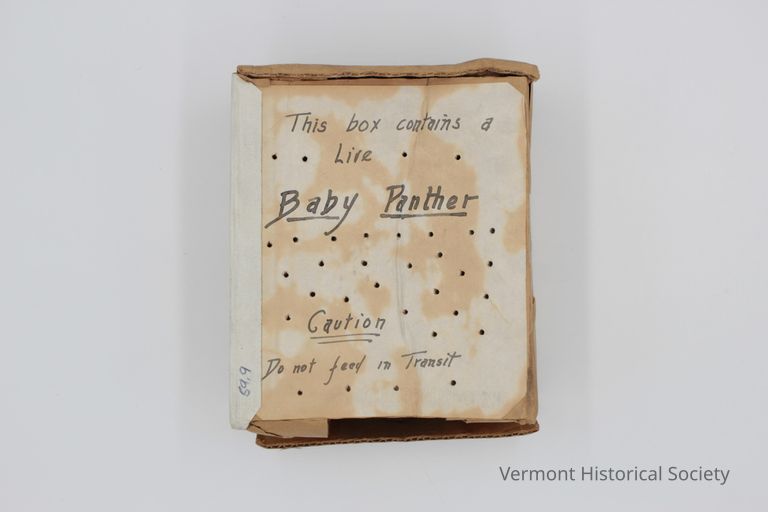 This box contains a
Live
Baby Panther
Caution
Do not feed in Transit
69.9
Vermont Historical Society